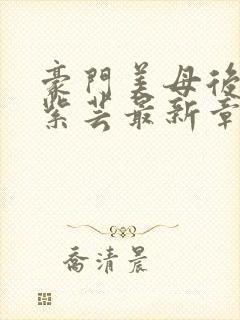 豪門美母後
紫芸最新章
喬清晨